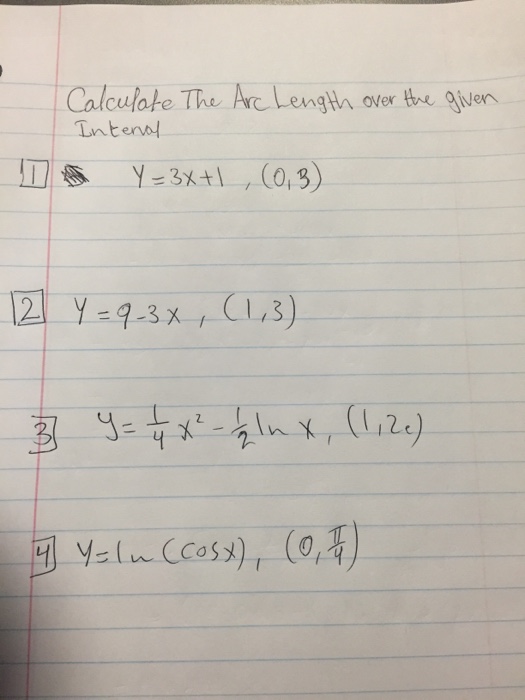 Calculate The Arc Length over the given
Interval
1 Y=3x+1, (0,3)
2 Y=9-3x, (1,3)
3 y=1/4 x²-1/2 ln x, (1,2e)
4 Y=ln(cosx), (0,π/4)